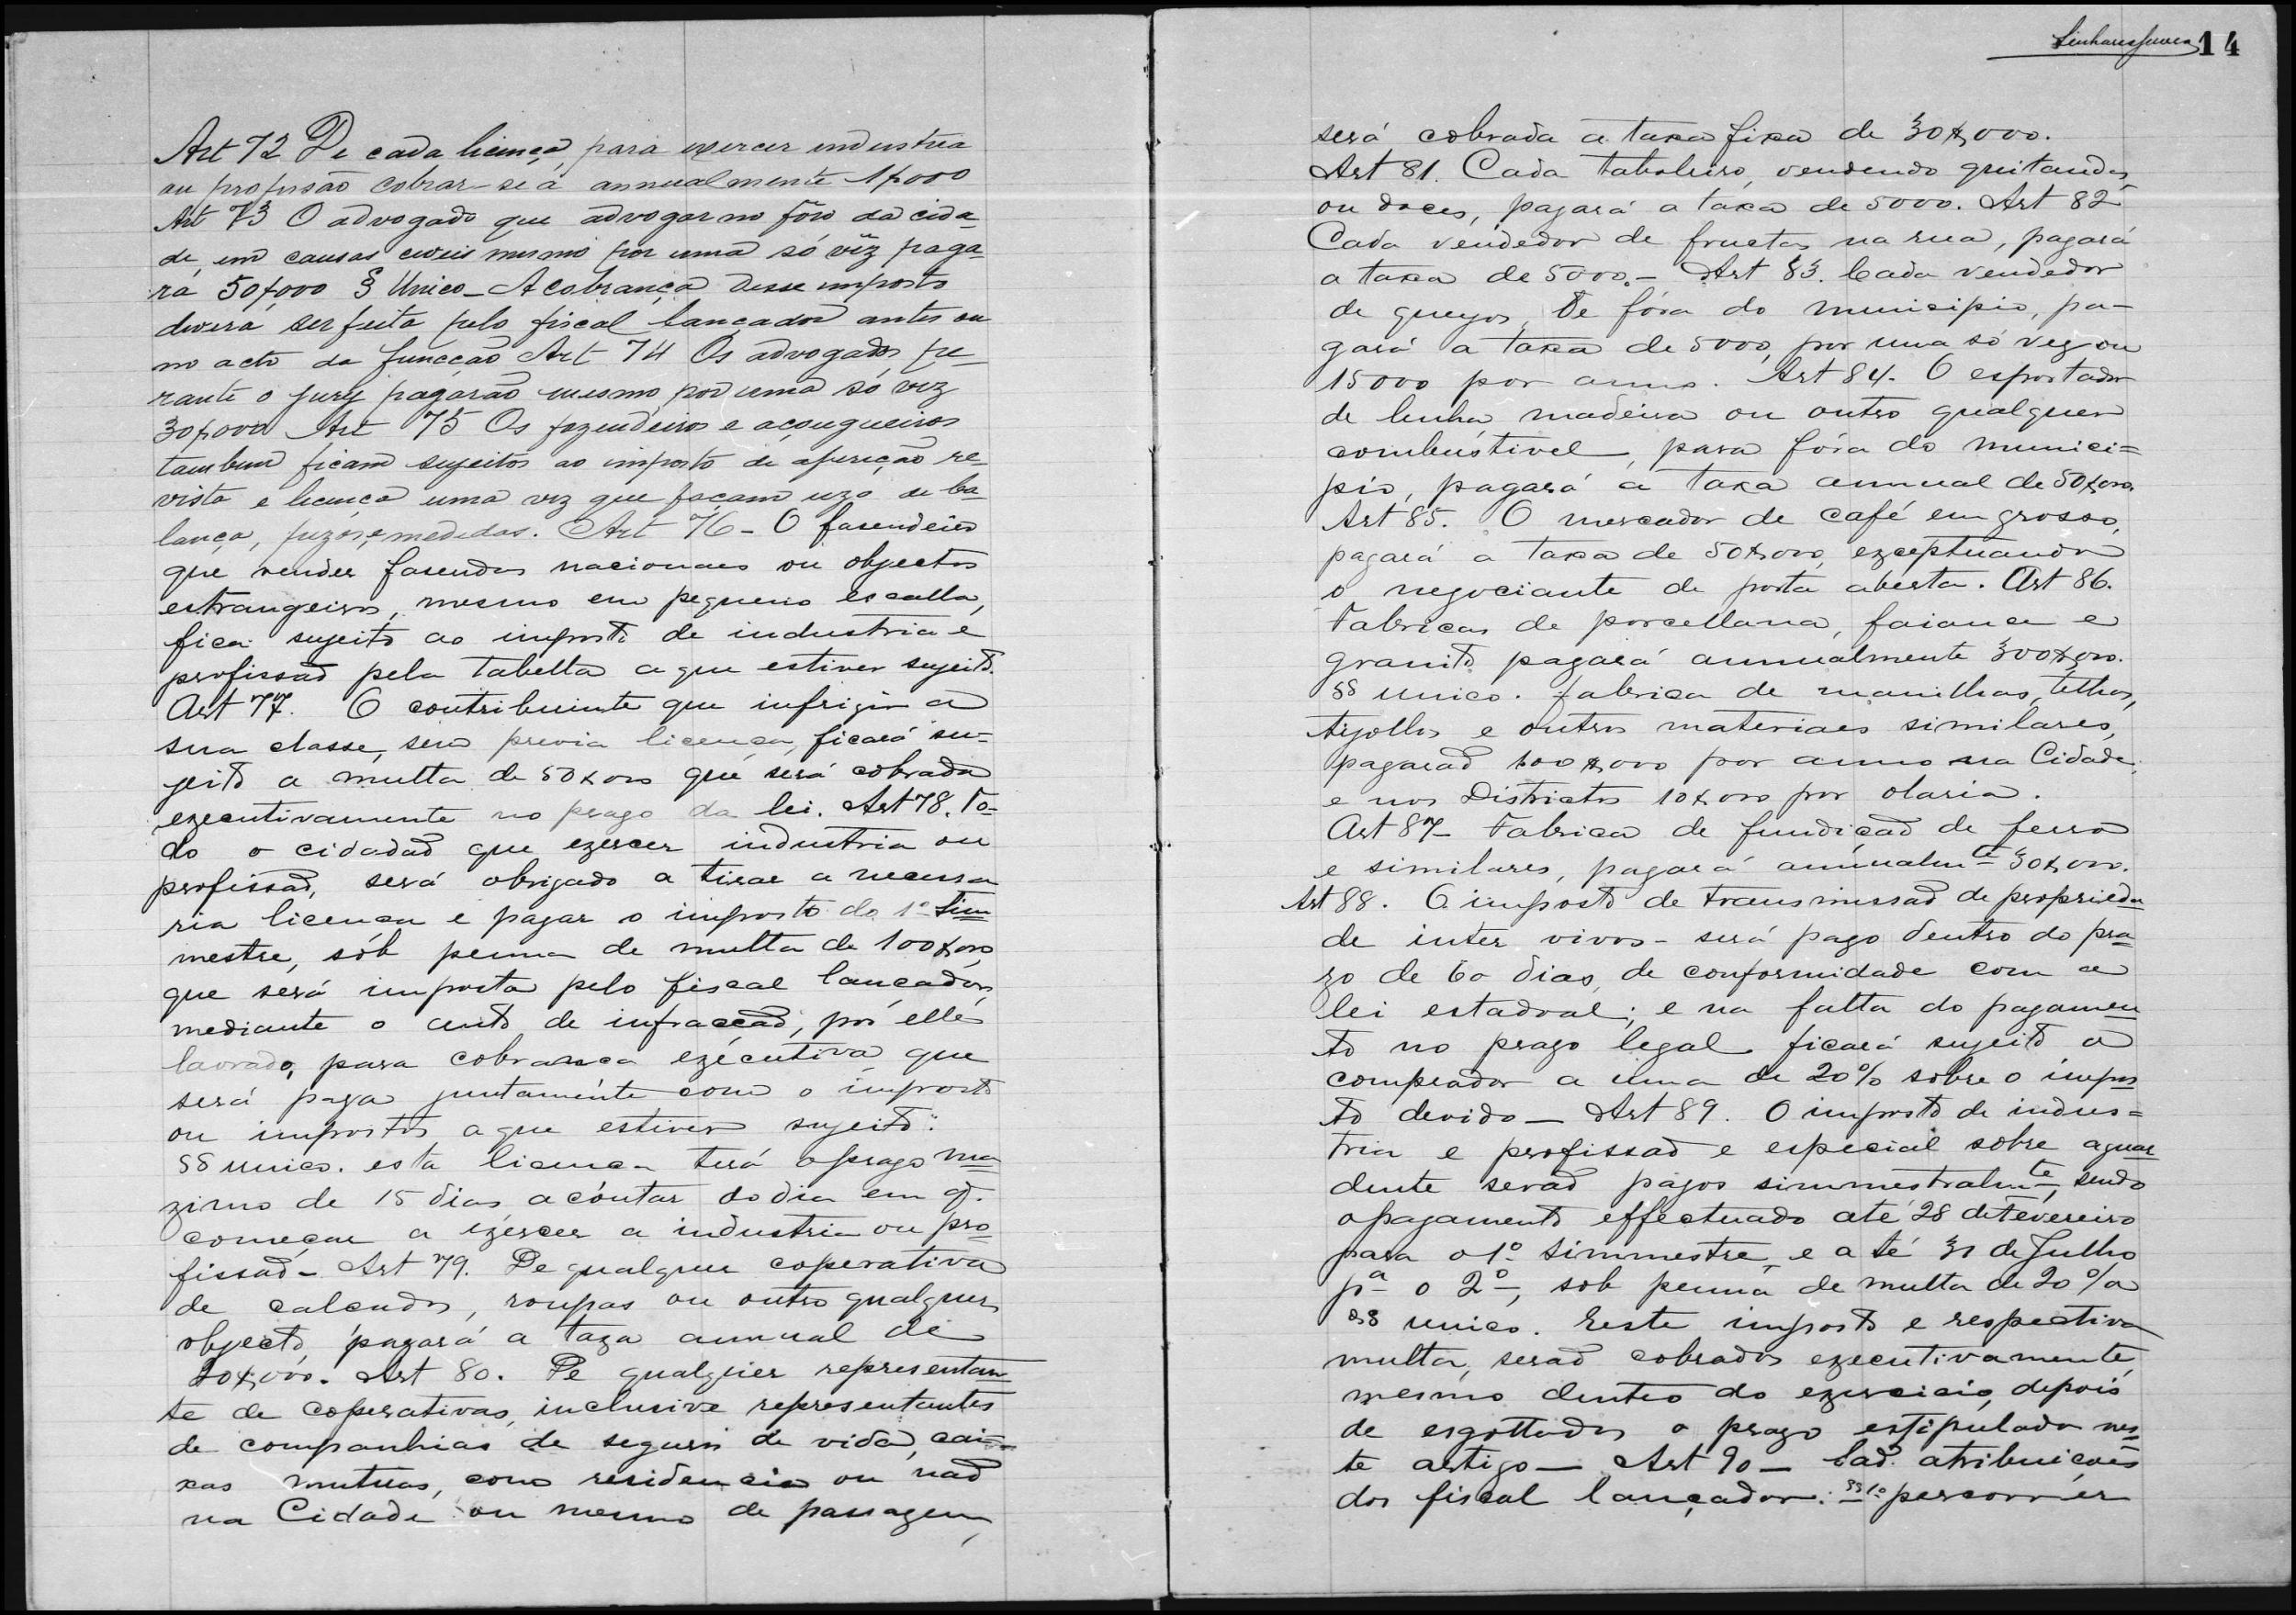 Art 72 De cada licença, para exercer industria
ou profissão cobrar-se-á annualmente 1$000
Art 73 O advogado que advogar no fôro da cida-
de, em causas civeis mesmo por uma só vêz paga-
rá 50$000 § Unico - A cobrança desse imposto
deverá ser feita pelo fiscal lançador antes ou
no acto da funcção Art 74 Os advogados pe-
rante o jury pagarão mesmo por uma só vez
30$000 Art 75 Os fazendeiros e açougueiros
tambem ficam sujeitos ao imposto de aferição re-
vista e licença uma vez que façam uzo de ba-
lança, pezos, e medidas. Art 76 - O fasendeiro
que vender fasendas nacionaes ou objectos
estrangeiros, mesmo em pequena escalla,
fica sujeito ao imposto de industria e
profissaõ pela tabella a que estiver sujeito.
Art 77. O contribuinte que infrigir a
sua classe, sem previa licença, ficará su-
jeito a multa de 50$000 que será cobrada
ezecutivamente no prazo da lei. Art 78. To-
do o cidadaõ que ezercer industria ou
profissaõ, será obrigado a tirar a necessa
ria licença e pagar o imposto do 1º sim
mestre, sób penna de multa de 100$000
que será imposta pelo fiscal lançador,
mediante o auto de infracçaõ, por elle
lavrado, para cobransa ezecutiva que
será paga juntamente com o imposto
ou impostos a que estiver sujeito:
§§ unico. esta licença terá o prazo ma
zimo de 15 dias a contar do dia em q.
começar a ezercer a industria ou pro
fissaõ - Art 79. De qualquer coperativa
de calcados, roupas ou outro qualquer
objecto, pagará a taza annual de
20$000. Art 80. De qualquer representan
te de coperativas, inclusive representantes
de companhias de seguros de vida, cai-
xas mutuas, com residencia ou naõ
na Cidade ou mesmo de passagem,
Linhares 14
será cobrada a taxa fixa de 30$000.
Art 81. Cada taboleiro, vendendo quitandas,
ou doces, pagará a taxa de 5000. Art 82
Cada vendedor de fructas na rua, pagará
a taxa de 5000. - Art 83. Cada vendedor
de queijos, de fóra do municipio, pa-
gará a taxa de 5000, por uma só vez ou
15000 por anno. Art 84. O esportador
de lenha, madeira ou outro qualquer
combustivel, para fóra do munici=
pio, pagará a taxa annual de 50$000.
Art 85. O mercador de café em grosso,
pagará a taxa de 50$000, ezceptuando
o negociante de porta aberta. Art 86.
Fabricas de porcellana, faiança e
granito pagará annualmente 300$000.
§§ unico. fabrica de manilhas, telhas,
tijollos e outros materiaes similares,
pagaraõ 100$000 por anno na Cidade,
e nos Districtos 10$000 por olaria.
Art 87 - Fabrica de fundiçaõ de ferro
e similares, pagará annualmte 30$000.
Art 88. O imposto de transmissaõ de proprieda
de inter vivos - será pago dentro do pra
zo de 60 dias, de conformidade com a
lei estadoal; e na falta do pagamen
to no prazo legal ficará sujeito o
comprador a uma de 20% sobre o impos
to devido - Art 89. O imposto de indus=
tria e profissaõ e especial sobre aguar
dente seraõ pagos simmestralmte, sendo
o pagamento effectuado até 28 de Fevereiro
para o 1º simmestre, e até 31 de Julho
pª o 2º, sob penna de multa de 20%
§§ unico. Este imposto e respectiva
multa, seraõ cobrados ezecutivamente,
mesmo dentro do ezercicio, depois
de esgottados o prazo estipulado nes
te artigo - Art 90 - Saõ atribuiçoes
dos fiscal lançador: §§1º percorrer